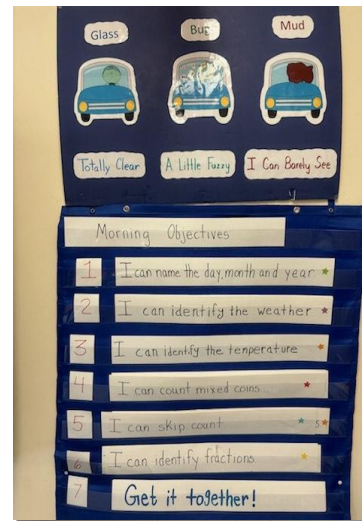 Glass Bug Mud
Totally Clear A Little Fuzzy I Can Barely See
Morning Objectives
1 I can name the day, month and year
2 I can identify the weather
3 I can identify the temperature
4 I can count mixed coins...
5 I can skip count 5
6 I can identify fractions
7 Get it together!